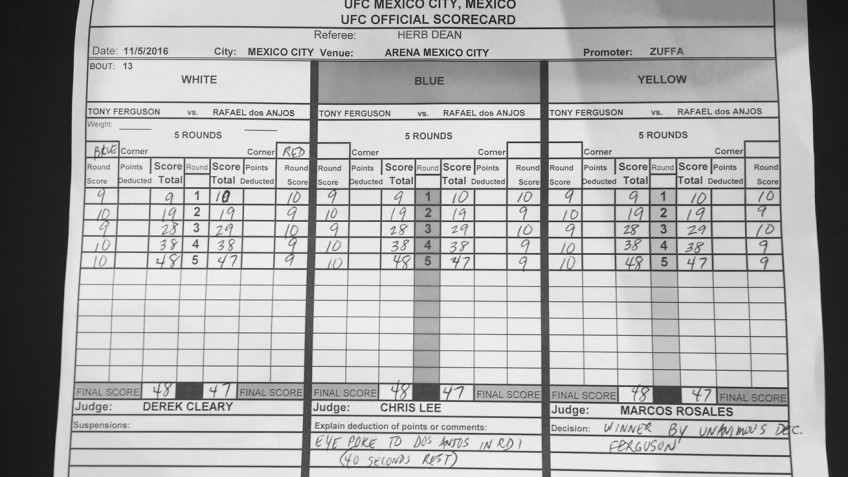 UFC MEXICO CITY, MEXICO
UFC OFFICIAL SCORECARD
Referee: HERB DEAN
Date: 11/5/2016 City: MEXICO CITY Venue: ARENA MEXICO CITY Promoter: ZUFFA
BOUT: 13
WHITE BLUE YELLOW
TONY FERGUSON vs. RAFAEL dos ANJOS TONY FERGUSON vs. RAFAEL dos ANJOS TONY FERGUSON vs. RAFAEL dos ANJOS
Weight:
5 ROUNDS 5 ROUNDS 5 ROUNDS
BLUE Corner Corner RED Corner Corner Corner Corner
Round Points Score Round Score Points Round Round Points Score Round Score Points Round Round Points Score Round Score Points Round
Score Deducted Total Total Deducted Score Score Deducted Total Total Deducted Score Score Deducted Total Total Deducted Score
9 9 1 10 10 9 9 1 10 10 9 9 1 10 10
10 19 2 19 9 10 19 2 19 9 10 19 2 19 9
9 28 3 29 10 9 28 3 29 10 9 28 3 29 10
10 38 4 38 9 10 38 4 38 9 10 38 4 38 9
10 48 5 47 9 10 48 5 47 9 10 48 5 47 9
FINAL SCORE 48 47 FINAL SCORE FINAL SCORE 48 47 FINAL SCORE FINAL SCORE 48 47 FINAL SCORE
Judge: DEREK CLEARY Judge: CHRIS LEE Judge: MARCOS ROSALES
Suspensions: Explain deduction of points or comments: Decision: WINNER BY UNANIMOUS DEC.
EYE POKE TO DOS ANJOS IN RD 1 FERGUSON
(40 SECONDS REST)